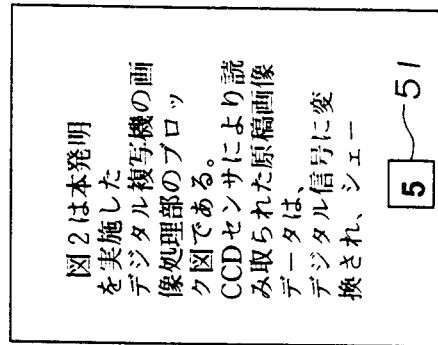 図2は本発明
を実施した
デジタル複写機の画
像処理部のブロッ
ク図である。
CCDセンサにより読
み取られた原稿画像
データは、
デジタル信号に変
換され、シェー
5
51